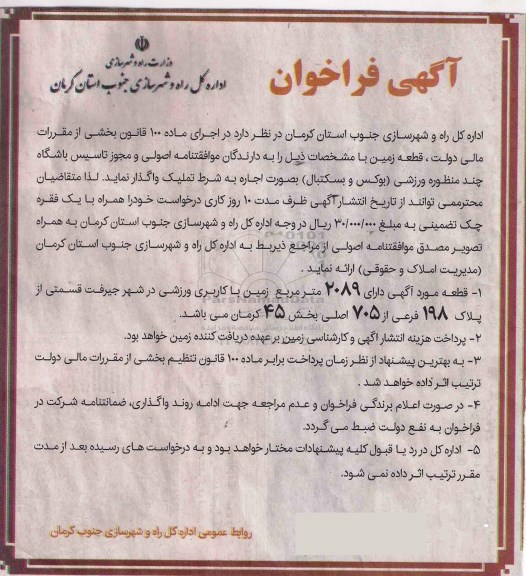 وزارت راه و شهرسازی
اداره کل راه و شهرسازی جنوب استان کرمان
آگهی فراخوان
اداره کل راه و شهرسازی جنوب استان کرمان در نظر دارد در اجرای ماده ۱۰۰ قانون بخشی از مقررات
مالی دولت ، قطعه زمین با مشخصات ذیل را به دارندگان موافقتنامه اصولی و مجوز تاسیس باشگاه
چند منظوره ورزشی (بوکس و بسکتبال) بصورت اجاره به شرط تملیک واگذار نماید. لذا متقاضیان
محترممی توانند از تاریخ انتشار آگهی ظرف مدت ۱۰ روز کاری درخواست خودرا همراه با یک فقره
چک تضمینی به مبلغ ۳۰/۰۰۰/۰۰۰ ریال در وجه اداره کل راه و شهرسازی جنوب استان کرمان به همراه
تصویر مصدق موافقتنامه اصولی از مراجع ذیربط به اداره کل راه و شهرسازی جنوب استان کرمان
(مدیریت املاک و حقوقی) ارائه نمایند .
۱- قطعه مورد آگهی دارای ۲۰۸۹ متر مربع زمین با کاربری ورزشی در شهر جیرفت قسمتی از
پلاک ۱۹۸ فرعی از ۷۰۵ اصلی بخش ۴۵ کرمان می باشد.
۲- پرداخت هزینه انتشار آگهی و کارشناسی زمین بر عهده دریافت کننده زمین خواهد بود.
۳- به بهترین پیشنهاد از نظر زمان پرداخت برابر ماده ۱۰۰ قانون تنظیم بخشی از مقررات مالی دولت
ترتیب اثر داده خواهد شد .
۴- در صورت اعلام برندگی فراخوان و عدم مراجعه جهت ادامه روند واگذاری، ضمانتنامه شرکت در
فراخوان به نفع دولت ضبط می گردد.
۵- اداره کل در رد یا قبول کلیه پیشنهادات مختار خواهد بود و به درخواست های رسیده بعد از مدت
مقرر ترتیب اثر داده نمی شود.
روابط عمومی اداره کل راه و شهرسازی جنوب کرمان